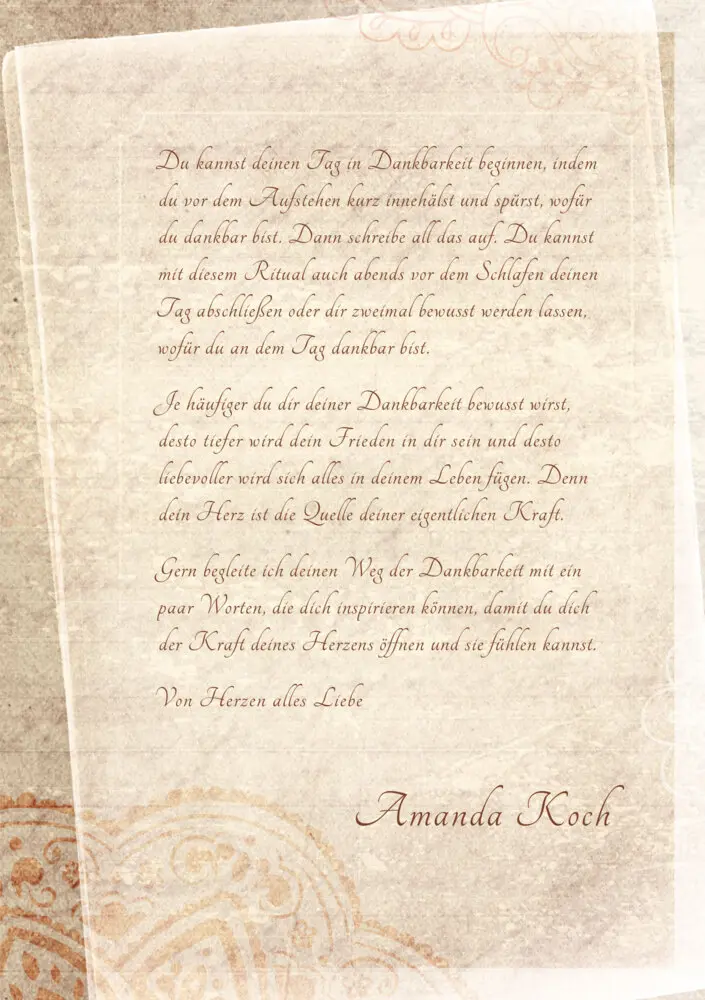 Du kannst deinen Tag in Dankbarkeit beginnen, indem
du vor dem Aufstehen kurz innehälst und spürst, wofür
du dankbar bist. Dann schreibe all das auf. Du kannst
mit diesem Ritual auch abends vor dem Schlafen deinen
Tag abschließen oder dir zweimal bewusst werden lassen,
wofür du an dem Tag dankbar bist.
Je häufiger du dir deiner Dankbarkeit bewusst wirst,
desto tiefer wird dein Frieden in dir sein und desto
liebevoller wird sich alles in deinem Leben fügen. Denn
dein Herz ist die Quelle deiner eigentlichen Kraft.
Gern begleite ich deinen Weg der Dankbarkeit mit ein
paar Worten, die dich inspirieren können, damit du dich
der Kraft deines Herzens öffnen und sie fühlen kannst.
Von Herzen alles Liebe
Amanda Koch